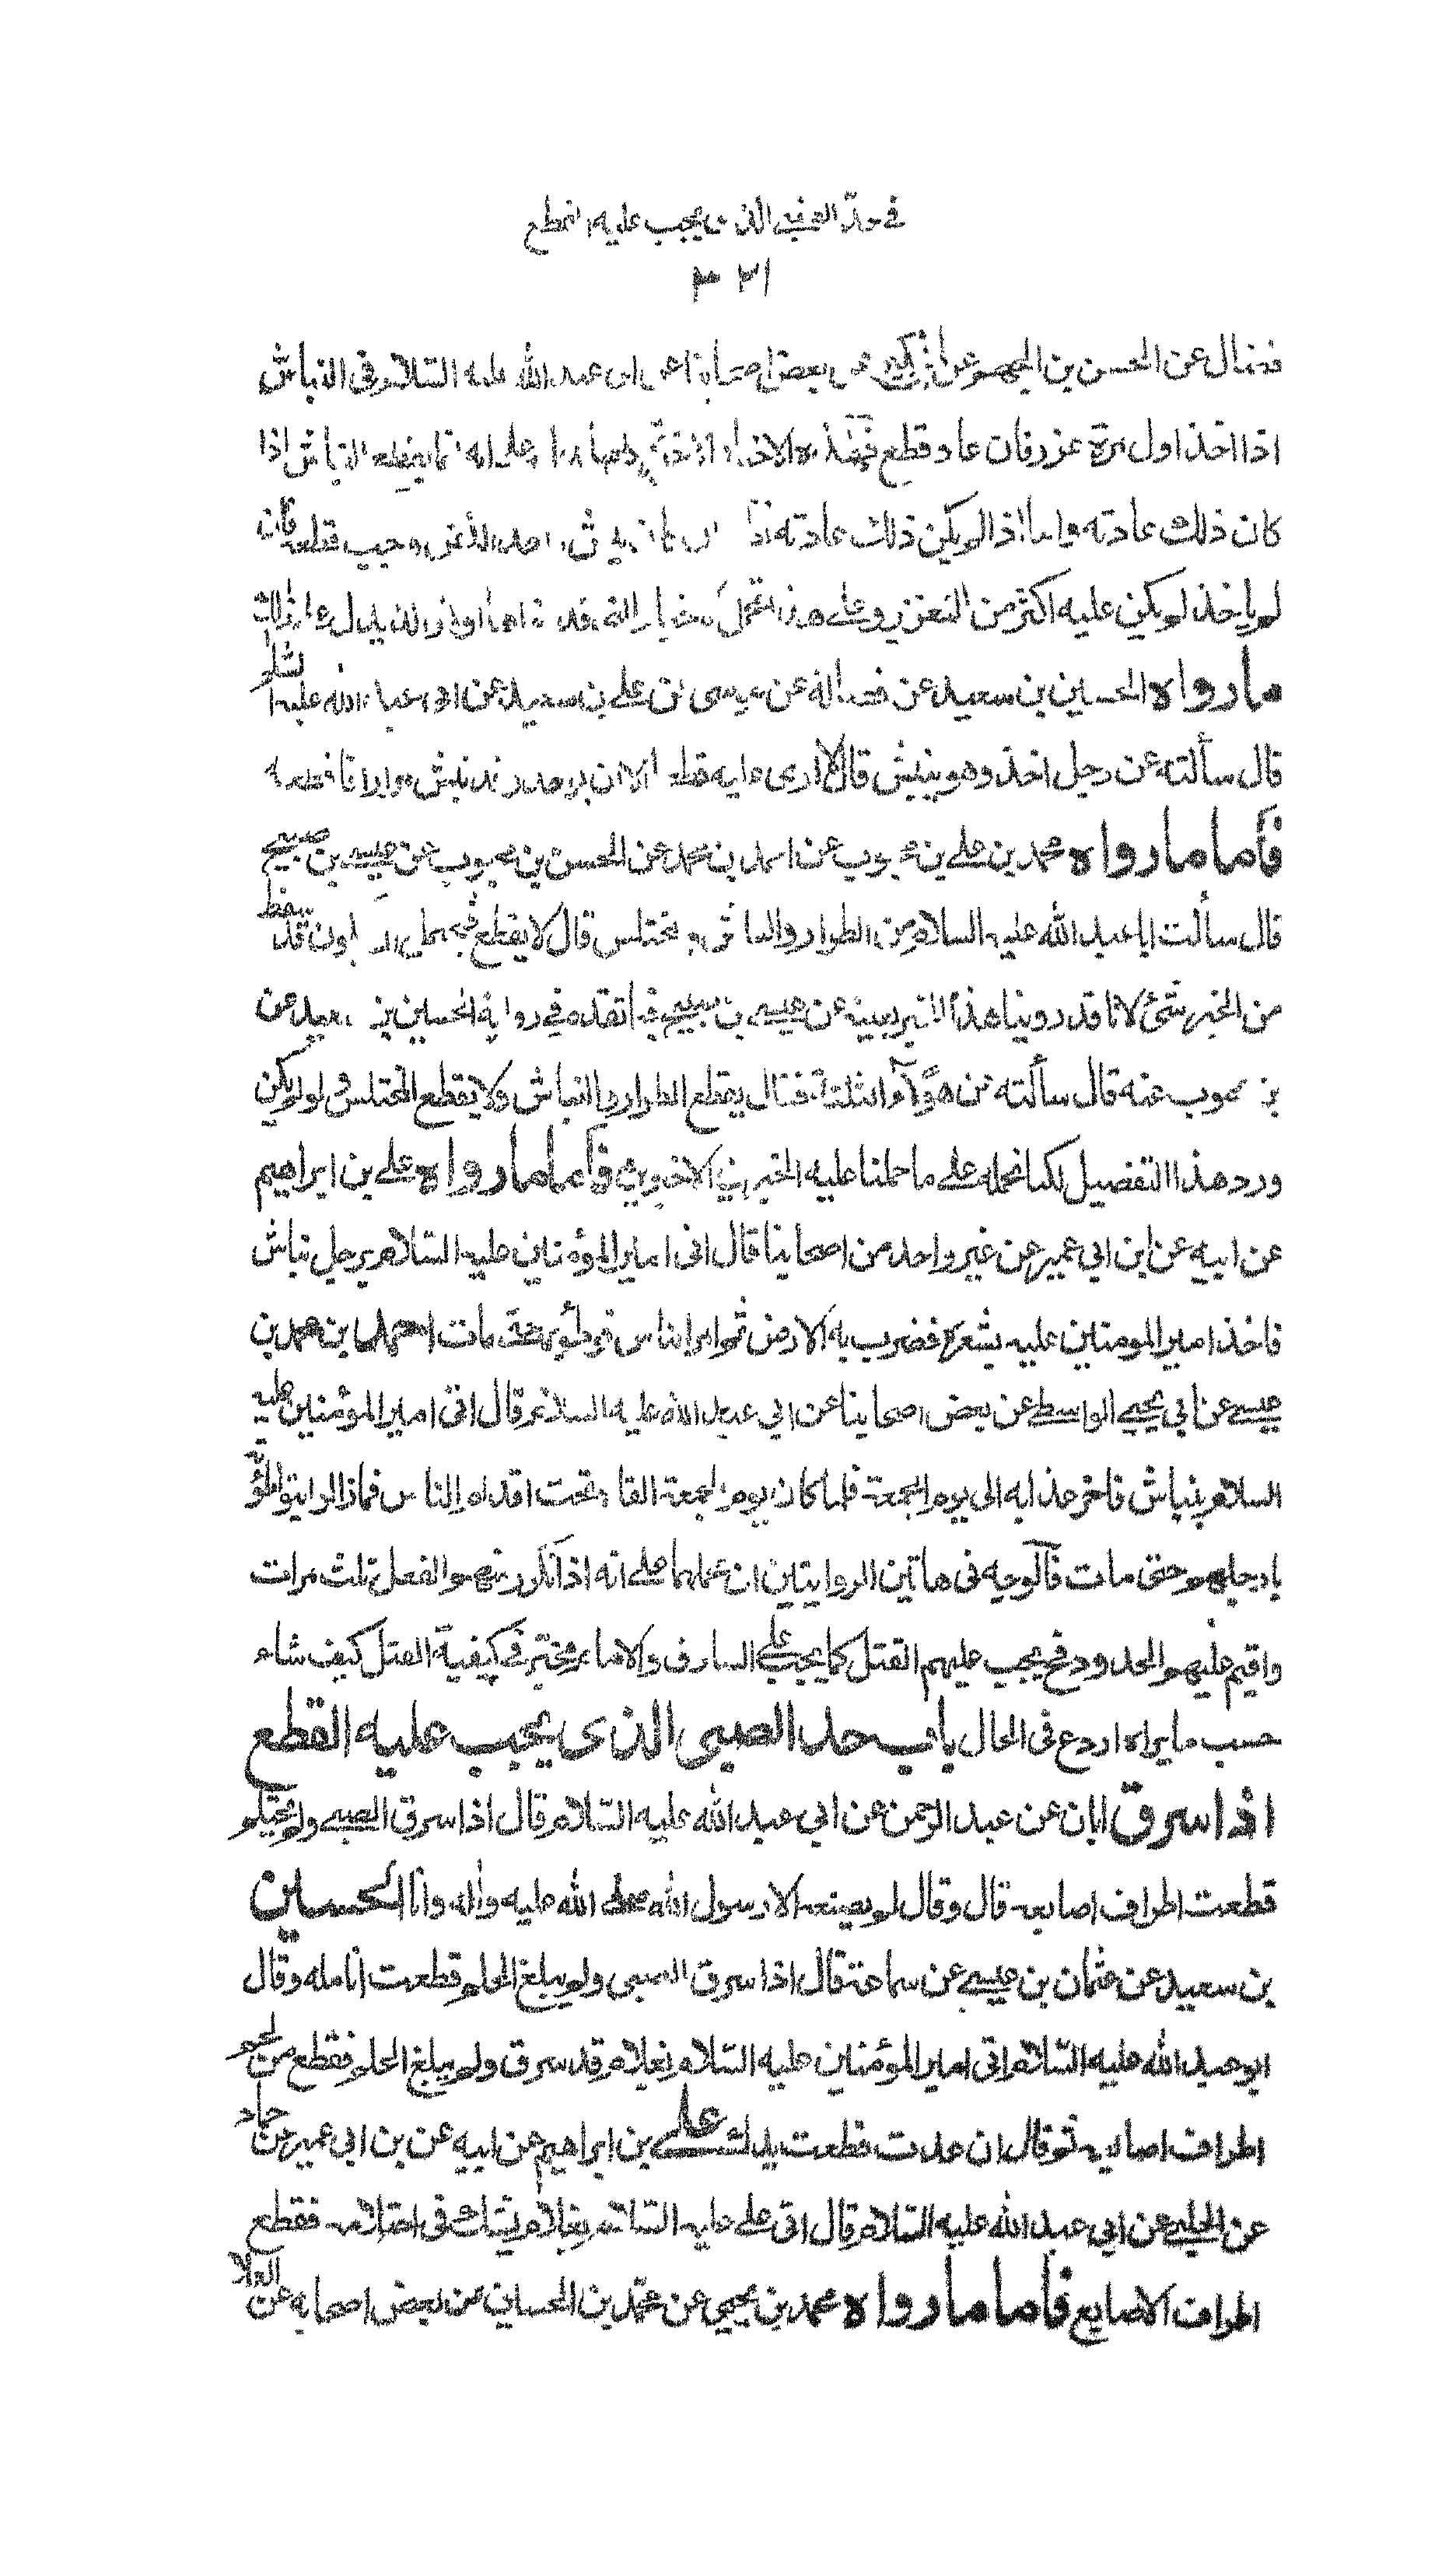 في حدّ الصبي الذى يجب عليه القطع
فضال عن الحسن بن الجهم عن ابن بكير عن بعض اصحابنا عن ابى عبد الله عليه السّلام فى النباش
اذا اخذ اول مرة عزر فان عاد قطع فهذه الاخبار الاخيرة كلها على انه انما يقطع النباش اذا
كان ذلك عادته واما اذا لم يكن ذلك عادته وجب قطعه فان
لم ياخذ لم يكن عليه اكثر من التعزير وعلى هذا تحمل والذى يدل على ذلك
ما رواه الحسين بن سعيد عن فضالة عن عيسى عن على بن سعيد عن ابى عبد الله عليه السّلم
قال سألته عن رجل اخذ وهو ينبش قال لا ارى عليه قطعا الا ان يوخذ وقد نبش مرارا فاقطعه
فأما ما رواه محمد بن علي بن محبوب عن احمد بن محمد عن الحسن بن محبوب عن عيسى بن صبيح
قال سألت ابا عبد الله عليه السلام عن الطرار والنباش والمختلس قال لا يقطع يكون قد سقط
من الخبر شئ لانا قد روينا هذا الخبر بعينه عن عيسى بن صبيح فيما تقدم في رواية الحسين بن سعيد عن
بن محبوب عنه قال سألته عن هؤلآء الثلثة فقال يقطع الطرار والنباش ولا يقطع المختلس ولو لم يكن
ورد هذا التفصيل لكنا نحمله على ما حملنا عليه الخبرين الاخيرين فأما ما رواه علي بن ابراهيم
عن ابيه عن ابن ابي عمير عن غير واحد من اصحابنا قال اتى امير المؤمنين عليه السّلام برجل نباش
فاخذ امير المومنين عليه بشعره فضرب به الارض ثم امر الناس فوطؤه حتى مات احمد بن محمد بن
عيسى عن ابي يحيى الواسطي عن بعض اصحابنا عن ابي عبد الله عليه السلام قال اتى امير المؤمنين عليه
السلام بنباش فاخر عذابه الى يوم الجمعة فلما كان يوم الجمعة القاه تحت اقدام الناس فما زالوا يتواطؤنه
بارجلهم حتى مات فالوجه فى هاتين الروايتين ان نحملهما على انه اذا تكرر منهم الفعل ثلث مرات
واقيم عليهم الحدود فح يجب عليهم القتل كما يجب على السارق والامام مخير في كيفية القتل كيف شاء
حسب ما يراه اردع فى الحال باب حد الصبى الذى يجب عليه القطع
اذا سرق ابان عن عبد الرحمن عن ابي عبد الله عليه السّلام قال اذا سرق الصبى ولم يحتلم
قطعت اطراف اصابعه قال وقال لم يصنعه الا رسول الله صلى الله عليه واله وانا الحسين
بن سعيد عن عثمان بن عيسى عن سماعة قال اذا سرق الصبى ولم يبلغ الحلم قطعت انامله وقال
ابو عبد الله عليه السّلام اتى امير المؤمنين عليه السّلام بغلام قد سرق ولم يبلغ الحلم فقطع من لحم
اطراف اصابعه ثم قال ان عدت قطعت يدك علي بن ابراهيم عن ابيه عن بن ابي عمير عن حماد
عن الحلبي عن ابي عبد الله عليه السّلام قال اتى على عليه السّلام بغلام يشك فى احتلامه فقطع
اطراف الاصابع فأما ما رواه محمد بن يحيى عن محمّد بن الحسين عن بعض اصحابه عن العلا